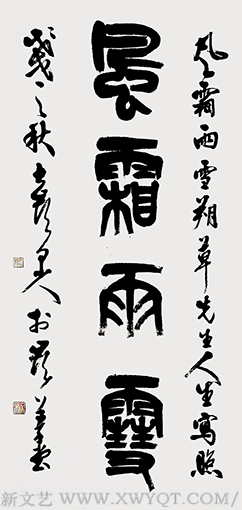 风霜雨雪朔草先生人生寫照
風霜雨雪
之秋 人於 堂
新文艺 WWW.XWYQT.COM/